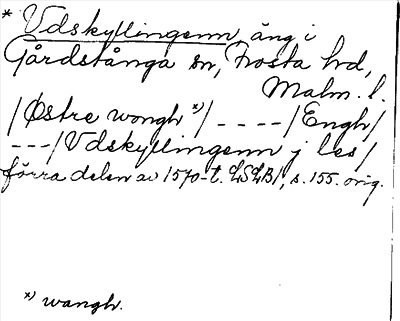 * Vdskyllingenn, äng i
Gårdstånga sn, Frosta hrd,
Malm. l.
/Østre wongh *)/ - - - - /Engh/
- - - /Vdskyllingenn j les/
förra delen av 1570-t. LSLB1, s. 155. orig.
*) wangh.